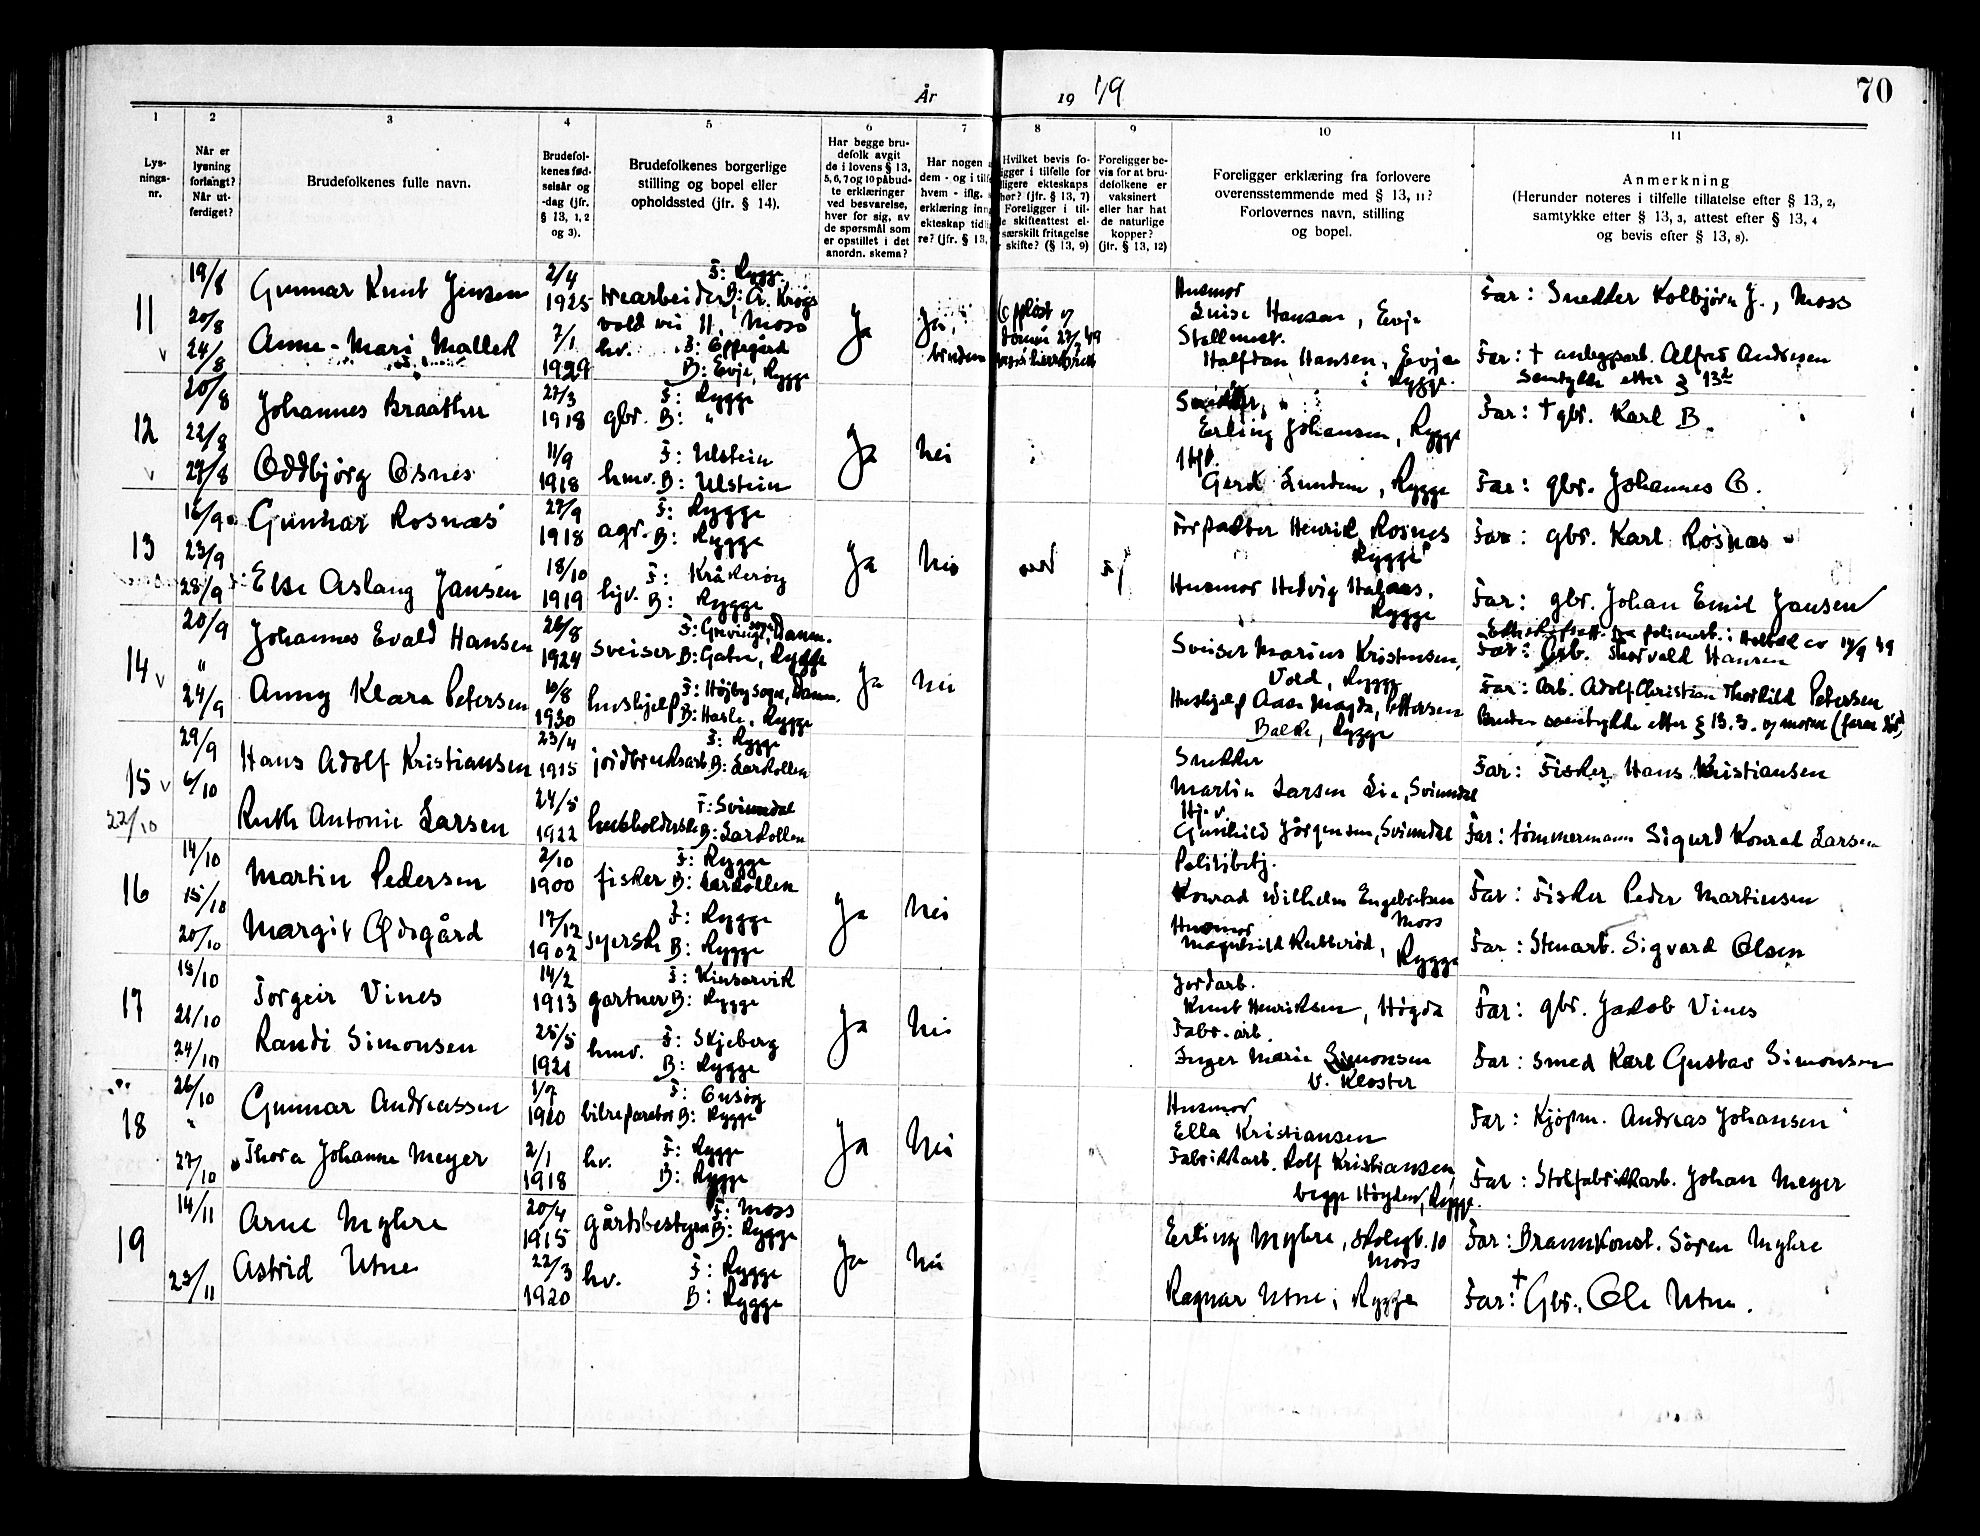 År 19 49
70
1 2 3 4 5 6 7 8 9 10 11
Lys-
nings-
nr.
Når er
lysning
forlangt?
Når ut-
ferdiget?
Brudefolkenes fulle navn.
Brudefol-
kenes fød-
selsår og
-dag (jfr.
§ 13, 1, 2
og 3).
Brudefolkenes borgerlige
stilling og bopel eller
opholdssted (jfr. § 14).
Har begge bru-
defolk avgit
de i lovens § 13,
5, 6, 7 og 10 påbud-
te erklæringer
ved besvarelse,
hver for sig, av
de spørsmål som
er opstillet i det
anordn. skema?
Har nogen a
dem - og i tilf
hvem - iflg.
erklæring inn
ekteskap tidl
re? (jfr. § 13,
Hvilket bevis fo-
igger i tilfelle for
ligere ekteskaps
hør? (jfr. § 13, 7)
Foreligger i til-
e skifteattest el-
særskilt fritagelse
skifte? (§ 13, 9)
Foreligger be-
vis for at bru-
defolkene er
vaksinert
eller har hat
de naturlige
kopper?
(jfr. § 13, 12)
Foreligger erklæring fra forlovere
overensstemmende med § 13, 11?
Forlovernes navn, stilling
og bopel.
Anmerkning
(Herunder noteres i tilfelle tillatelse efter § 13, 2,
samtykke efter § 13, 3, attest efter § 13, 4
og bevis efter § 13, 8).
11 19/8 20/8 24/8
Gunnar Knut Jensen 2/4 1925 trearbeider F: Rygge
B: A. Krogs
vold vei 11, Moss
Anne-Mari Mallek 7/1 1929 hv. F: Oppegård
B: Evje, Rygge
Ja Ja,
bruden
Husmor
Luise Hansen, Evje
Halfdan Hansen, Evje
i Rygge.
Far: Snekker Kolbjørn J., Moss
Far: † anleggsarb. Alfred Andresen
Samtykke etter § 13 2
12 20/8 22/8 27/8
Johannes Braathen 27/3 1918 gbr. F: Rygge
B: "
Oddbjørg Osnes 11/9 1918 hmv. F: Ulstein
B: Ulstein
Ja Nei
Erling Johansen, Rygge
Gerd Lunden, Rygge
Far: † gbr. Karl B.
Far: gbr. Johannes O.
13 16/9 23/9 28/9
Gunnar Rosnæs 27/9 1918 agr. F: Rygge
B: Rygge
Else Aslaug Jansen 18/10 1919 hjv. F: Kråkerøy
B: Rygge
Ja Nei
Forpakter Henrik Rosnes
Rygge
Husmor Hedvig Halaas,
Rygge
Far: gbr. Karl Rosnæs
Far: gbr. Johan Emil Jansen
14 20/9 " 24/9
Johannes Evald Hansen 26/8 1924 sveiser F: Grevinge sogn, Danm.
B: Gabn, Rygge
Anny Klara Petersen 10/8 1930 hushjelp F: Højby sogn, Danm.
B: Hasle, Rygge
Ja Nei
Sveiser Marius Kristensen,
Vold, Rygge
Hushjelp Aase Magda, Pettersen
Balke, Rygge
Far: Arb. Thorvald Hansen
Far: Arb. Adolf Christian Thorkild Petersen
Bruden samtykke etter § 13.3. og moren (faren død)
15 29/9 6/10
22/10
Hans Adolf Kristiansen 23/4 1915 jordbruksarb. F: Rygge
B: Larkollen
Ruth Antonie Larsen 24/5 1922 husholderske F: Svinndal
B: Larkollen
Snekker
Martin Larsen Lie, Svinndal
Hj.v.
Gunhild Jörgensen, Svinndal
Far: Fisker Hans Kristiansen
Far: tömmermann Sigurd Konrad Larsen
16 14/10 15/10 20/10
Martin Pedersen 2/10 1900 fisker F: Rygge
B: Larkollen
Margit Ødegård 17/12 1902 syerske F: Rygge
B: Rygge
Ja Nei
Politibetj.
Konrad Wilhelm Engebretsen
Moss
Husmor
Magnhild Kubberød,
Rygge
Far: Fisker Peder Martinsen
Far: Stenarb. Sigvard Olsen
17 18/10 21/10 24/10
Torgeir Vines 14/2 1913 gartner F: Kinsarvik
B: Rygge
Randi Simonsen 25/5 1921 hmv. F: Skjeberg
B: Rygge
Ja Nei
Jordarb.
Knut Henriksen, Högda
Fabr.arb.
Inger Marie Simonsen
V. Kloster
Far: gbr. Jakob Vines
Far: smed Karl Gustav Simonsen
18 26/10 " 27/10
Gunnar Andreassen 1/7 1920 bilreparatør F: Onsöy
B: Rygge
Thora Johanne Meyer 2/1 1918 hv. F: Rygge
B: Rygge
Ja Nei
Husmor
Ella Kristiansen
Fabrikkarb. Rolf Kristiansen,
begge Höyden, Rygge.
Far: Kjøpm. Andreas Johansen
Far: Stolfabrikkarb. Johan Meyer
19 14/11 23/11
Arne Myhre 20/4 1915 gårdsbestyrer F: Moss
B: Rygge
Astrid Utne 22/3 1920 hv. F: Rygge
B: Rygge
Ja Nei
Erling Myhre, Skolegt. 10
Moss
Ragnar Utne, Rygge
Far: Brannkonst. Sören Myhre
Far: † Gbr., Ole Utne.